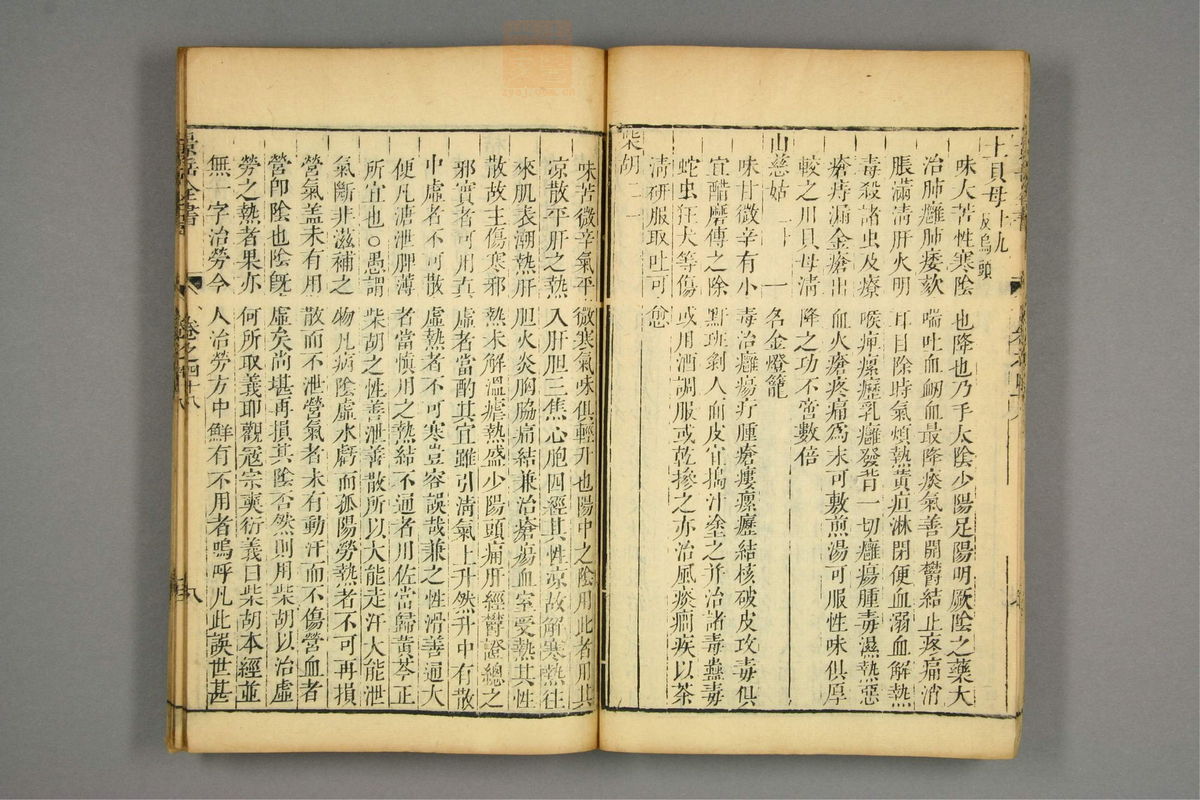 土貝母十九反烏頭
味大苦性寒陰也降也乃手太陰少陽足陽明厥陰之藥大
治肺癰肺痿欬喘吐血衂血最降痰氣善開鬱結止疼痛消
脹滿淸肝火明耳目除時氣煩熱黃疸淋閉便血溺血解熱
毒殺諸虫及療喉痺瘰癧乳癰發背一切癰瘍腫毒濕熱惡
瘡痔漏金瘡出血火瘡疼痛爲末可敷煎湯可服性味俱厚
較之川貝母淸降之功不啻數倍
山慈姑二十一名金燈籠
味甘微辛有小毒治癰瘍疔腫瘡瘻瘰癧結核破皮攻毒俱
宜醋磨傅之除䵟斑剥人面皮宜搗汁塗之并治諸毒蠱毒
蛇虫狂犬等傷或用酒調服或乾摻之亦治風痰癎疾以茶
淸研服取吐可愈
柴胡二一
味苦微辛氣平微寒氣味俱輕升也陽中之陰用此者用其
凉散平肝之熱入肝胆三焦心胞四經其性凉故解寒熱往
來肌表潮熱肝胆火炎胸脇痛結兼治瘡瘍血室受熱其性
散故主傷寒邪熱未解溫瘧熱盛少陽頭痛肝經鬱證總之
邪實者可用眞虛者當酌其宜雖引淸氣上升然升中有散
中虛者不可散虛熱者不可寒豈容誤哉兼之性滑善通大
便凡溏泄脾薄者當愼用之熱結不通者用佐當歸黃芩正
所宜也○愚謂柴胡之性善泄善散所以大能走汗大能泄
氣斷非滋補之物凡病陰虛水虧而孤陽勞熱者不可再損
營氣盖未有用散而不泄營氣者未有動汗而不傷營血者
營卽陰也陰旣虛矣尚堪再損其陰否然則用柴胡以治虛
勞之熱者果亦何所取義耶觀寇宗奭衍義曰柴胡本經並
無一字治勞今人治勞方中鮮有不用者嗚呼凡此誤世甚
景岳全書
卷之四十八
八